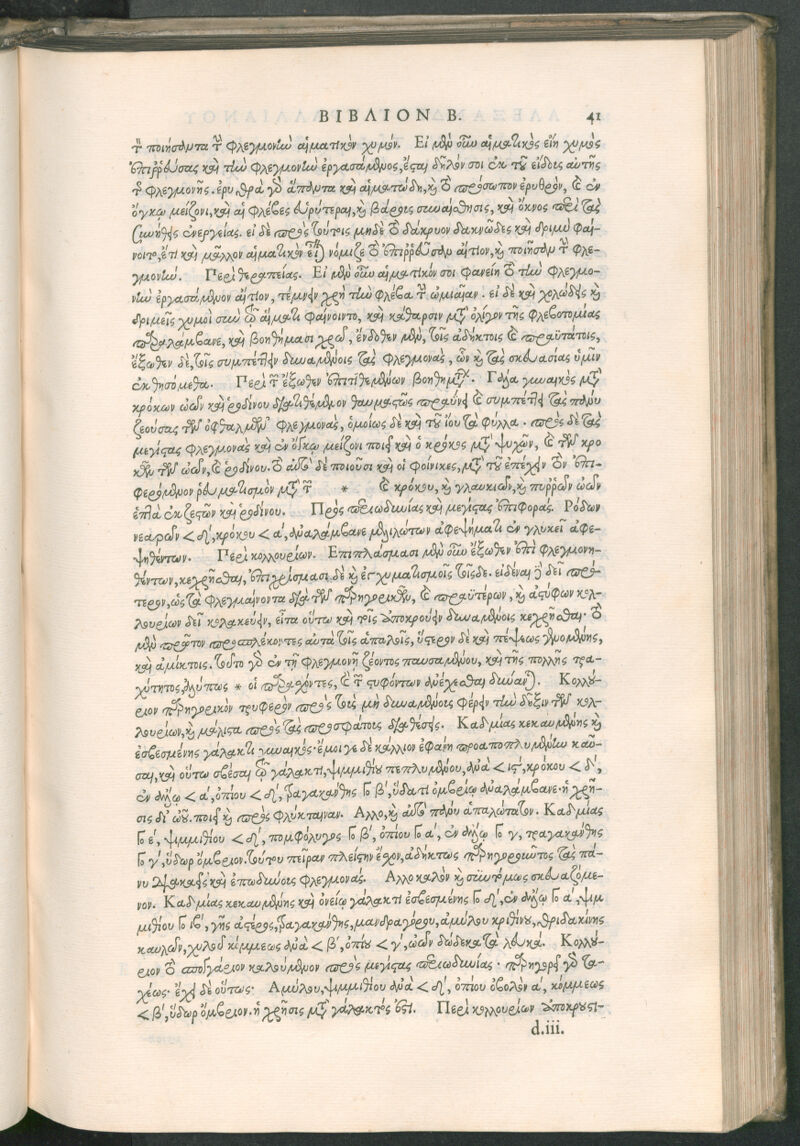 ΒΙΒΛΙΟΝ Β. 41
τὸν ποιήσαντα τὴν φλεγμονὴν αἱματικὸν χυμόν. Εἰ μὲν οὖν αἱματικὸς εἴη χυμὸς
ἐπιρρεύσας καὶ τὴν φλεγμονὴν ἐργασάμενος, ἔσται δῆλόν σοι ἐκ τοῦ εἴδους αὐτῆς
τῆς φλεγμονῆς. ἐρυθρὰ γὰρ ἅπαντα καὶ αἱματώδη, καὶ τὸ πρόσωπον ἐρυθρὸν, καὶ ἐν
ὄγκῳ μείζονι, καὶ αἱ φλέβες εὐρύτεραι, καὶ βάρους συναίσθησις, καὶ ὄκνος περὶ τὰς
συνήθεις ἐνεργείας. εἰ δὲ πρὸς τούτοις μηδὲ τὸ δάκρυον δακνῶδες καὶ δριμὺ φαί-
νοιτο, ἔτι καὶ μᾶλλον αἱματικὸν εἶναι νόμιζε τὸ ἐπιρρεῦσαν αἴτιον, καὶ ποιῆσαν τὴν φλε-
γμονήν. Περὶ θεραπείας. Εἰ μὲν οὖν αἱματικόν σοι φανείη τὸ τὴν φλεγμο-
νὴν ἐργασάμενον αἴτιον, τέμνειν χρὴ τὴν φλέβα τὴν ὠμιαίαν. εἰ δὲ καὶ χολώδεις καὶ
δριμεῖς χυμοὶ σὺν τῷ αἵματι φαίνοιντο, καὶ κάθαρσιν μετ' ὀλίγον τῆς φλεβοτομίας
παραλάμβανε, καὶ βοηθήμασι χρῶ, ἔνδοθεν μὲν, τοῖς ἀδήκτοις καὶ πραϋτάτοις,
ἔξωθεν δὲ, τοῖς συμπέττειν δυναμένοις τὰς φλεγμονὰς, ὧν καὶ τὰς σκευασίας ὑμῖν
ἐκθησόμεθα. Περὶ τῶν ἔξωθεν ἐπιτιθεμένων βοηθημάτων. Γάλα γυναικὸς μετὰ
κρόκων ὠῶν καὶ ῥοδίνου διατιθέμενον θαυμαστῶς πραΰνει καὶ συμπέττει τὰς πάνυ
ζεούσας τῶν ὀφθαλμῶν φλεγμονὰς, ὁμοίως δὲ καὶ τοῦ ἴου τὰ φύλλα. πρὸς δὲ τὰς
μεγίστας φλεγμονὰς καὶ ἐν ὄγκῳ μείζονι ποιεῖ καὶ ὁ κρόκος μετὰ ψυχῶν, καὶ τῶν κρο
κῶν τῶν ὠῶν, καὶ ῥοδίνου. τὸ αὐτὸ δὲ ποιοῦσι καὶ οἱ φοίνικες, μετὰ τοῦ ἐπέχειν τὸν ἐπι-
φερόμενον ῥευματισμὸν μετὰ τῆς * καὶ κρόκου, καὶ γλαυκίων, καὶ πυρρῶν ὠῶν
ἑπτὰ ἐκζεστῶν καὶ ῥοδίνου. Πρὸς περιωδυνίας καὶ μεγίστας ἐπιφοράς. Ῥόδων
νεαρῶν < η΄, κρόκου < α΄, ἀναλάμβανε μελιλώτων ἀφεψήματι ἐν γλυκεῖ ἀφε-
ψηθέντων. Περὶ κολλουρίων. Ἐπιπλάσμασι μὲν οὖν ἔξωθεν ἐπὶ φλεγμονη-
θέντων, κεχρῆσθαι, ἐπιχρίσμασι δὲ καὶ ἐγχυματισμοῖς τοῖσδε. εἰδέναι γὰρ δεῖ πρό-
τερον, ὡς τὰ φλεγμαίνοντα διὰ τῶν παρηγορικῶν, καὶ πραϋτέρων, καὶ ἀστύφων κολ-
λουρίων δεῖ κολακεύειν, εἶτα οὕτω καὶ τοῖς ἀποκρούειν δυναμένοις κεχρῆσθαι. τὸ
μὲν πρῶτον προσπλέκοντες αὐτὰ τοῖς ἁπαλοῖς, ὕστερον δὲ καὶ πέψεως γενομένης,
καὶ ἀμίκτοις. τοῦτο γὰρ ἐν τῇ φλεγμονῇ ζέοντος παυσαμένου, καὶ τῆς πολλῆς τρα-
χύτητος, ἀλύπως * οἱ πάσχοντες, καὶ τῶν στυφόντων ἀνέχεσθαι δύνανται. Κολλού-
ριον παρηγορικὸν τρυφερὸν πρὸς τοὺς μὴ δυναμένους φέρειν τὴν δῆξιν τῶν κολ-
λουρίων, καὶ μάλιστα πρὸς τὰς προσφάτους διαθέσεις. Καδμίας κεκαυμένης καὶ
ἐσβεσμένης γάλακτι γυναικός. ἔμοιγε δὲ κάλλιον ἐφάνη προαποπλυμένην καῦ-
σαι, καὶ οὕτω σβέσαι τῷ γάλακτι, ψιμμιθίου πεπλυμένου, ἀνὰ < ιϛ΄, κρόκου < δ΄,
ἐν ἄλλῳ < α΄, ὀπίου < η΄, τραγακάνθης Γο β΄, ὕδατι ὀμβρίῳ ἀναλάμβανε. ἡ χρῆ-
σις δι' ὠοῦ. ποιεῖ καὶ πρὸς φλύκταιναν. Ἄλλο, καὶ αὐτὸ πάνυ ἁπαλώτατον. Καδμίας
Γο ε΄, ψιμμιθίου < η΄, πομφόλυγος Γο β΄, ὀπίου Γο α΄, ἐν ἄλλῳ Γο γ, τραγακάνθης
Γο γ΄, ὕδωρ ὄμβριον. τούτου πεῖραν πλείστην ἔσχον, ἀδήκτως παρηγοροῦντος τὰς πά-
νυ διακαεῖς καὶ ἐπωδύνους φλεγμονάς. Ἄλλο καλὸν καὶ συντόμως σκευαζόμε-
νον. Καδμίας κεκαυμένης καὶ ὀνείῳ γάλακτι ἐσβεσμένης Γο η΄, ἐν ἄλλῳ Γο α΄, ψιμ
μιθίου Γο ιβ΄, γῆς ἀστέρος, τραγακάνθης, μανδραγόρου, ἀμύλου κριθίνου, θριδακίνης
καυλῶν, χυλοῦ κόμμεως ἀνὰ < β΄, ὀπίου < γ΄, ὠῶν δώδεκα τὰ λευκά. Κολλού-
ριον τὸ σπογγάριον καλούμενον πρὸς μεγίστας περιωδυνίας. παρηγορεῖ γὰρ τα-
χέως. ἔχει δὲ οὕτως. Ἀμύλου, ψιμμιθίου ἀνὰ < η΄, ὀπίου ὀβολὸν α΄, κόμμεως
< β΄, ὕδωρ ὄμβριον. ἡ χρῆσις μετὰ γάλακτός ἐστι. Περὶ κολλουρίων ἀποκρουστι-
d.iii.